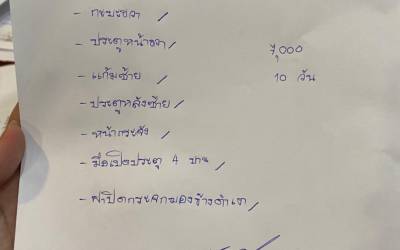 - กะบะขวา /
- ประตูหน้าขวา / 7,000
- แก้มซ้าย / 10 วัน
- ประตูหลังซ้าย /
- หน้ากระจัง /
- มือเปิดประตู 4 บาน /
- ฝาปิดกระจกมองข้างดำเงา /